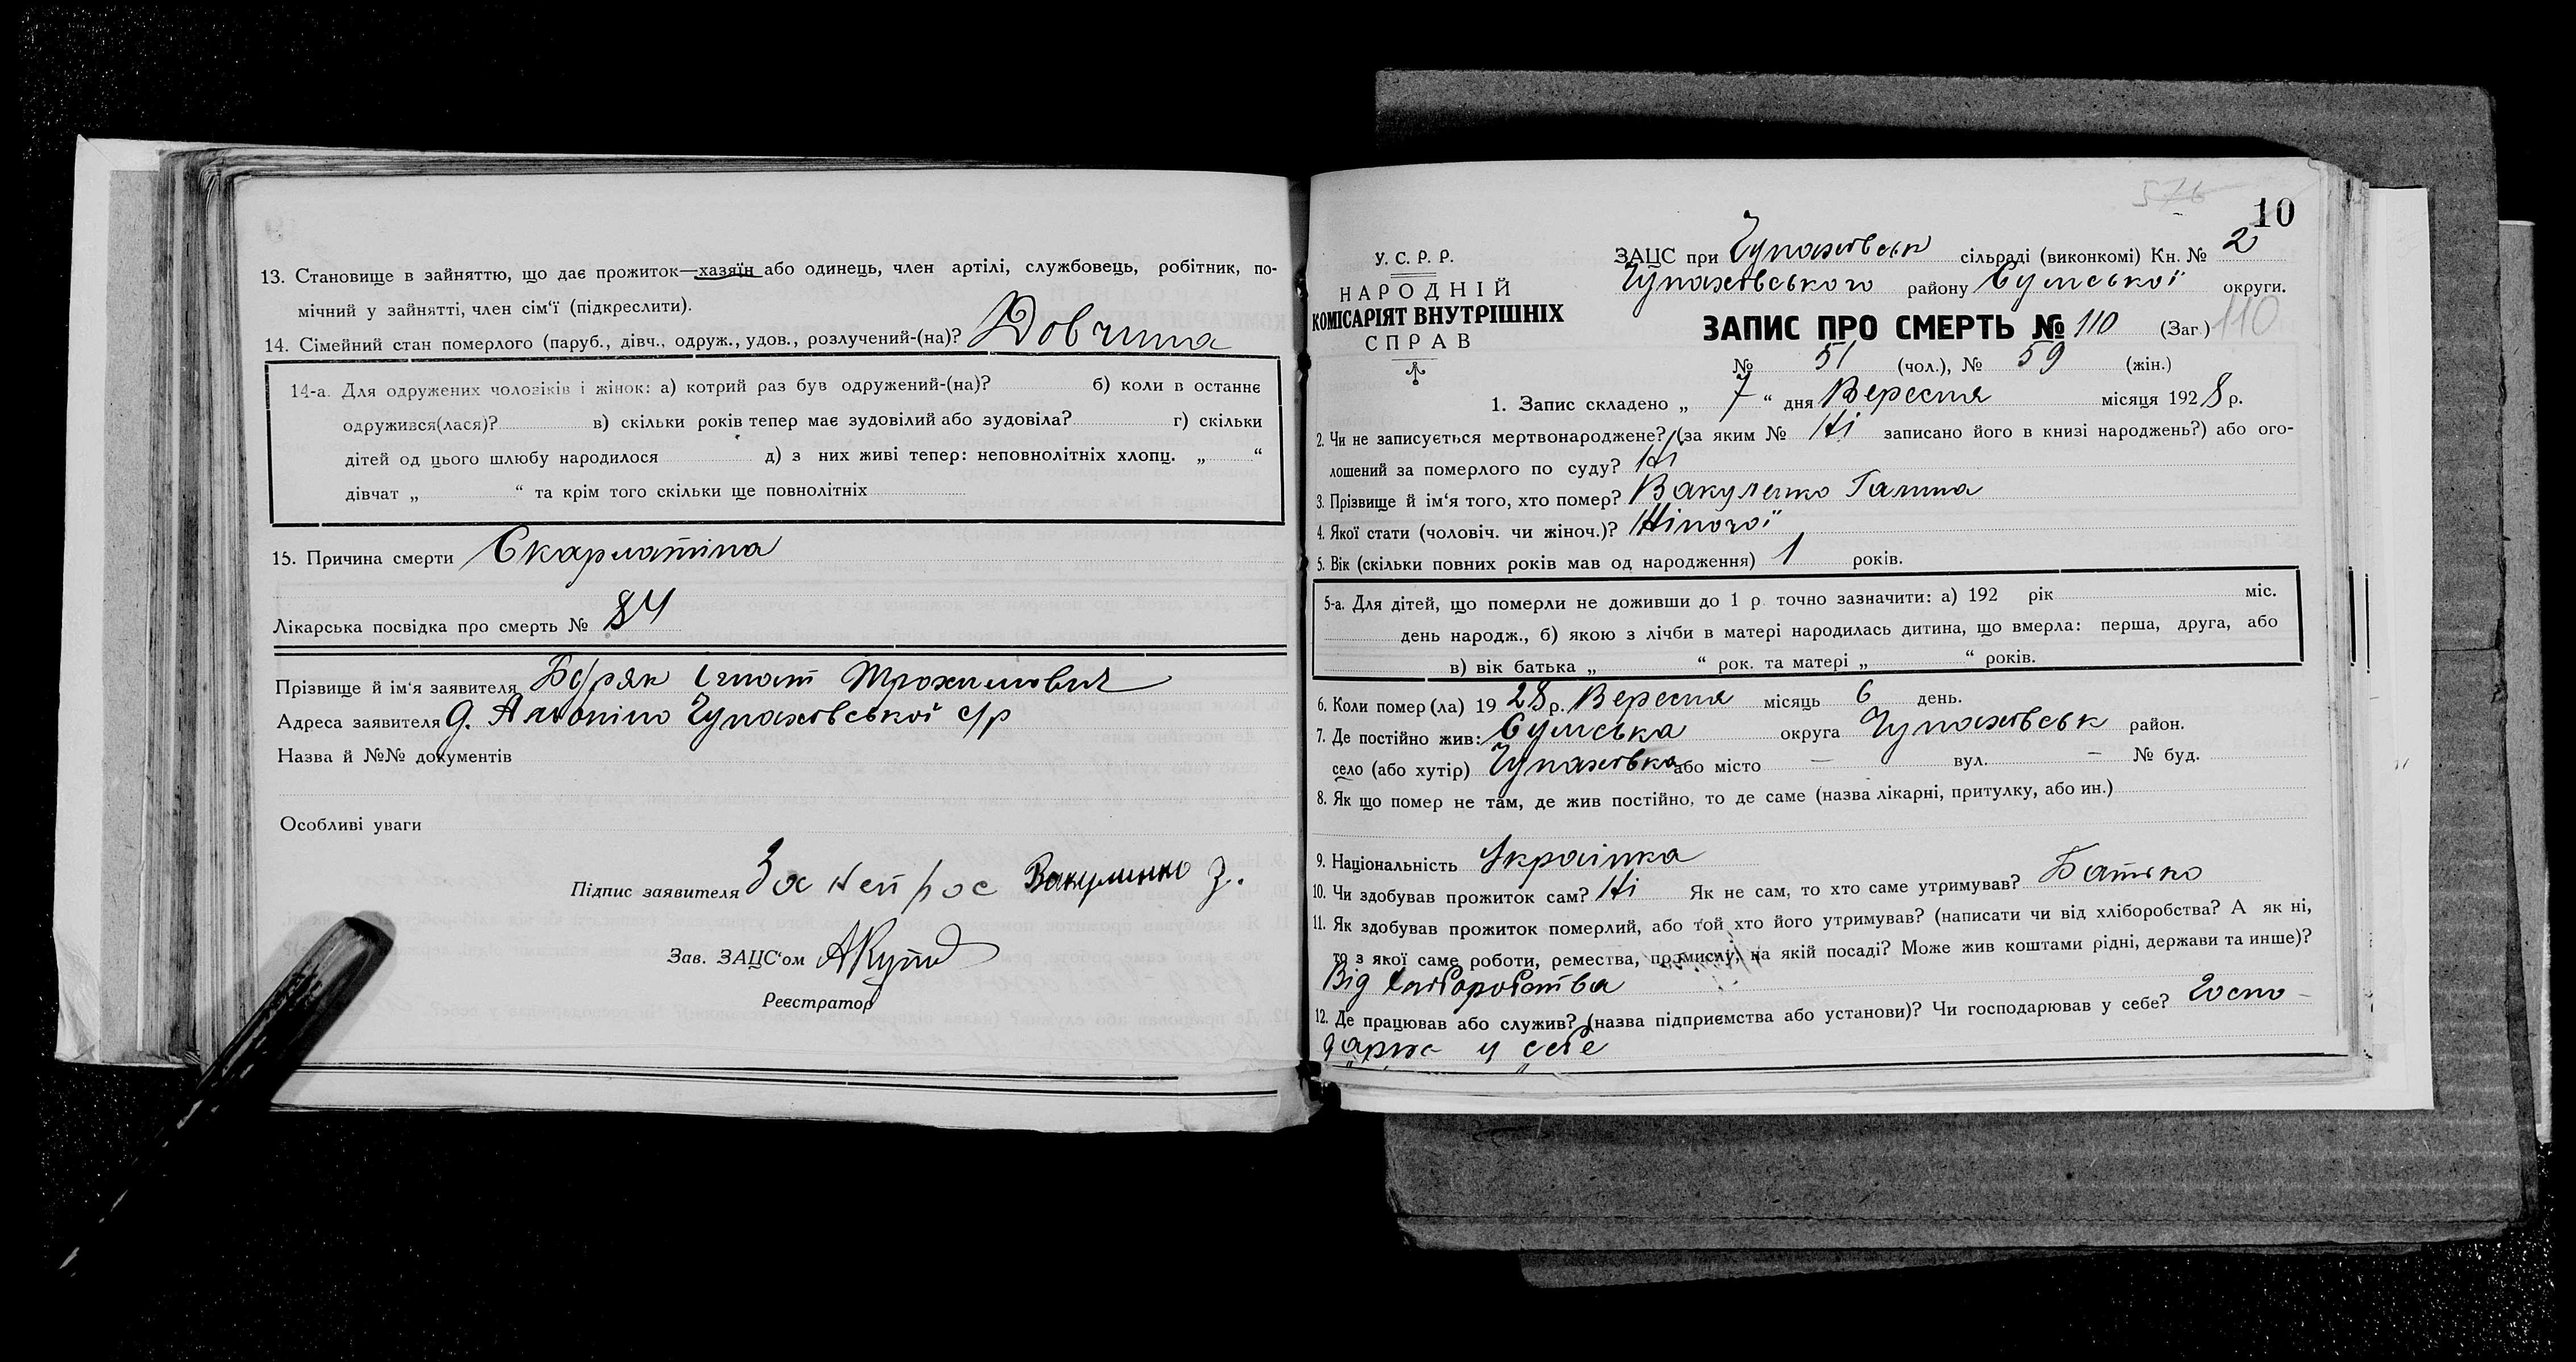 13. Становище в зайняттю, що дає прожиток—хазяїн або одинець, член артілі, службовець, робітник, по-
мічний у зайнятті, член сім'ї (підкреслити).
14. Сімейний стан померлого (паруб., дівч., одруж., удов., розлучений-(на)? Довчина
14-а. Для одружених чоловіків і жінок: а) котрий раз був одружений-(на)? б) коли в останнє
одружився(лася)? в) скільки років тепер має зудовілий або зудовіла? г) скільки
дітей од цього шлюбу народилося д) з них живі тепер: неповнолітніх хлопц. „ “
дівчат „ “ та крім того скільки ще повнолітніх
15. Причина смерти Скарлатіна
Лікарська посвідка про смерть № 84
Прізвище й ім'я заявителя Ігнат Трохимович
Адреса заявителя Чупахівської с/р
Назва й №№ документів
Особливі уваги
Підпис заявителя За Вакуленко
Зав. ЗАЦС'ом
Реєстратор
10
У. С. Р. Р.
НАРОДНІЙ
КОМІСАРІЯТ ВНУТРІШНІХ
СПРАВ
ЗАЦС при Чупахівськ сільраді (виконкомі) Кн. № 2
Чупахівського району Сумської округи.
ЗАПИС ПРО СМЕРТЬ № 110 (Заг.) 110
№ 51 (чол.), № 59 (жін.)
1. Запис складено „ 7 “ дня Вересня місяця 1928 р.
2. Чи не записується мертвонароджене? (за яким № Ні записано його в книзі народжень?) або ого-
лошений за померлого по суду? Ні
3. Прізвище й ім'я того, хто помер? Вакуленко Галина
4. Якої стати (чоловіч. чи жіноч.)? Жіночої
5. Вік (скільки повних років мав од народження) 1 років.
5-а. Для дітей, що померли не доживши до 1 р. точно зазначити: а) 192 рік міс.
день народж., б) якою з лічби в матері народилась дитина, що вмерла: перша, друга, або
в) вік батька „ “ рок. та матері „ “ років.
6. Коли помер(ла) 1928 р. Вересня місяць 6 день.
7. Де постійно жив: Сумська округа Чупахівськ район.
село (або хутір) Чупахівка або місто — вул. — № буд.
8. Як що помер не там, де жив постійно, то де саме (назва лікарні, притулку, або ин.)
9. Національність Українка
10. Чи здобував прожиток сам? Ні Як не сам, то хто саме утримував? Батько
11. Як здобував прожиток померлий, або той хто його утримував? (написати чи від хліборобства? А як ні,
то з якої саме роботи, ремества, промислу, на якій посаді? Може жив коштами рідні, держави та инше)?
Від хліборобства
12. Де працював або служив? (назва підприємства або установи)? Чи господарював у себе? Госпо-
дарює у себе